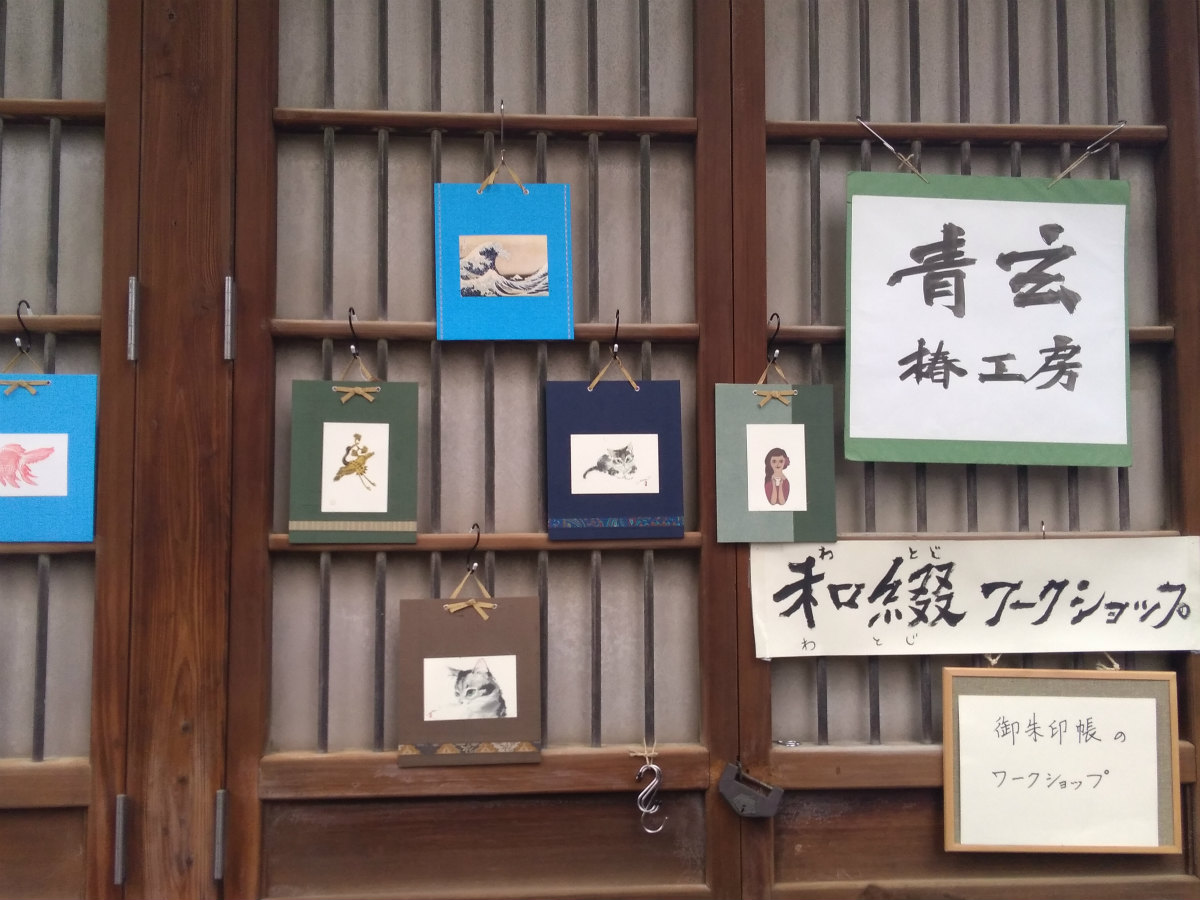 青玄
椿工房
わ とじ
和綴ワークショップ
わ とじ
御朱印帳の
ワークショップ